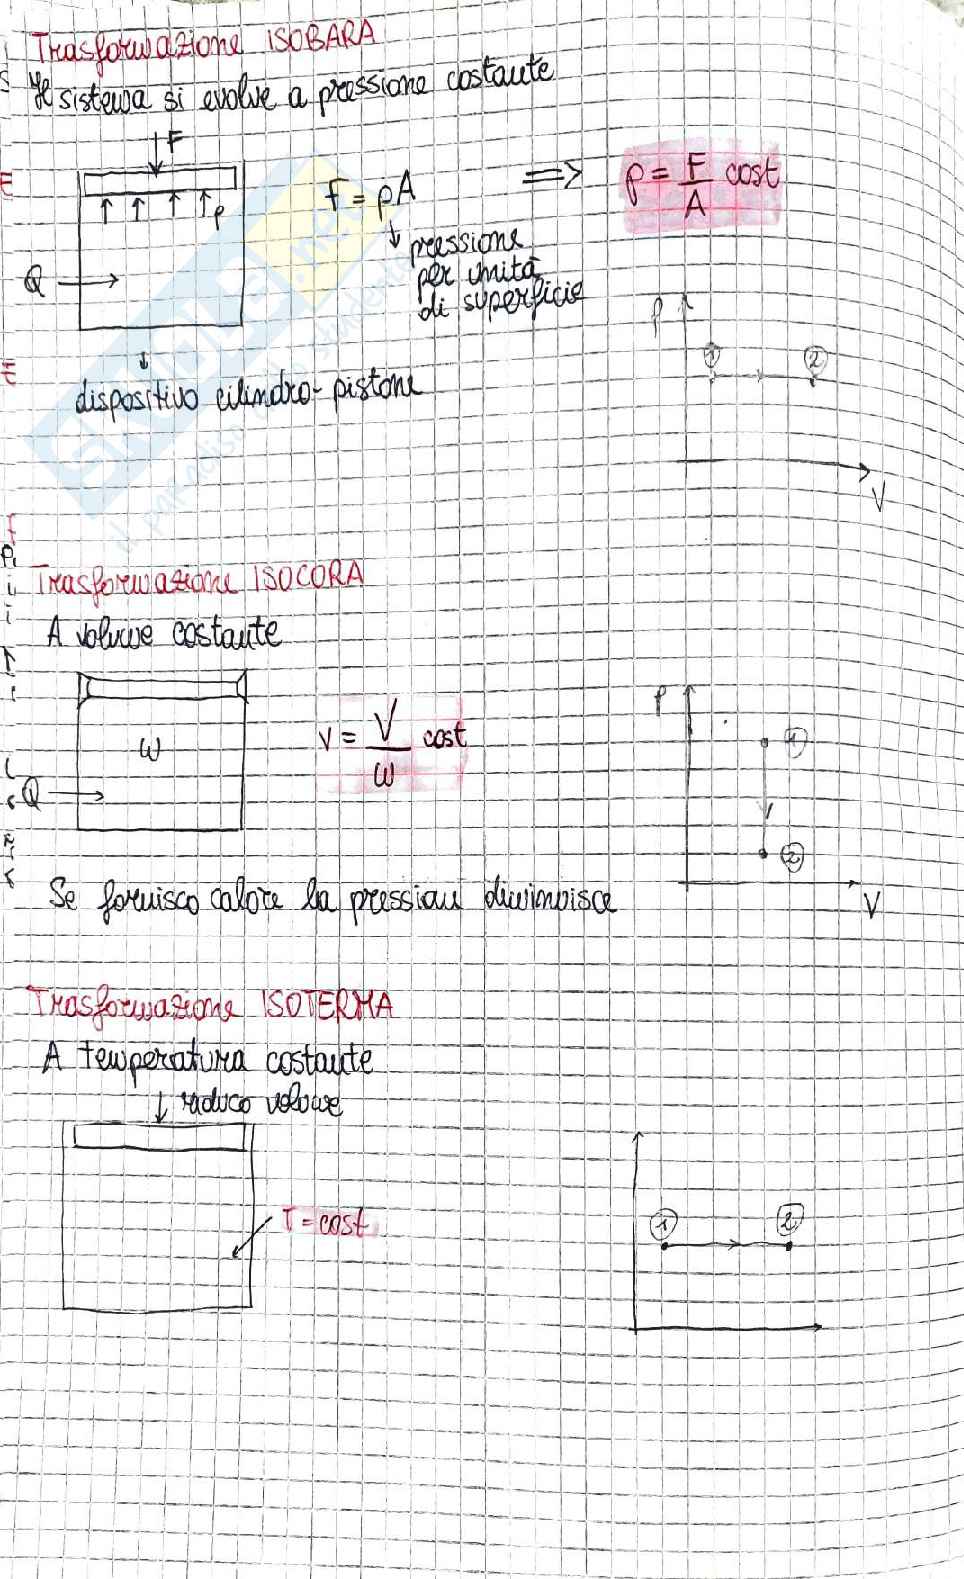 Trasformazione ISOBARA
Il sistema si evolve a pressione costante
F
p
Q
F = pA
⟹ p = F/A cost
↓ pressione
per unità
di superficie
↓
dispositivo cilindro-pistone
p
1 2
V
SKUOLA.net
il paradiso dello studente
Trasformazione ISOCORA
A volume costante
m
Q
v = V/m cost
p
1
2
V
Se fornisco calore la pressione diminuisce
Trasformazione ISOTERMA
A temperatura costante
↓ riduco volume
T = cost
1 2